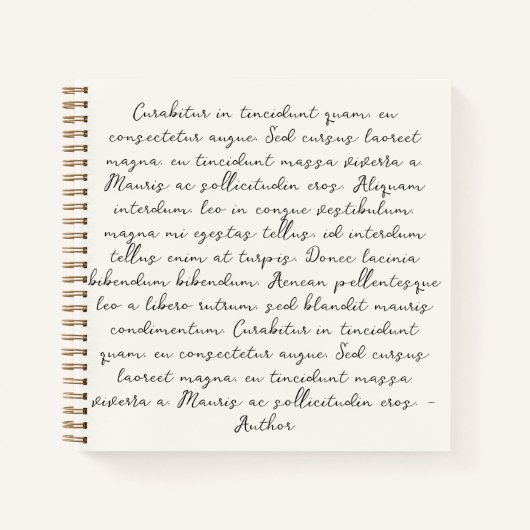 Curabitur in tincidunt quam, eu
consectetur augue. Sed cursus laoreet
magna, eu tincidunt massa viverra a.
Mauris ac sollicitudin eros. Aliquam
interdum, leo in congue vestibulum,
magna mi egestas tellus, id interdum
tellus enim at turpis. Donec lacinia
bibendum bibendum. Aenean pellentesque
leo a libero rutrum, sed blandit mauris
condimentum. Curabitur in tincidunt
quam, eu consectetur augue. Sed cursus
laoreet magna, eu tincidunt massa
viverra a. Mauris ac sollicitudin eros. -
Author